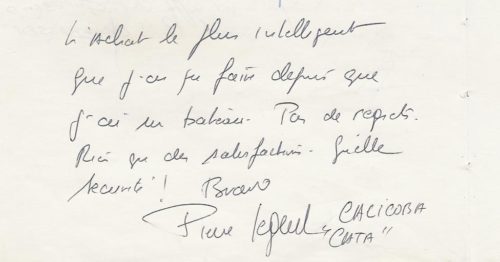 L'achat le plus intelligent
que j'ai pu faire depuis que
j'ai un bateau. Pas de regrets.
Rien que des satisfactions. Quelle
sécurité ! Bravo
Pierre
"CALICOBA
CATA"